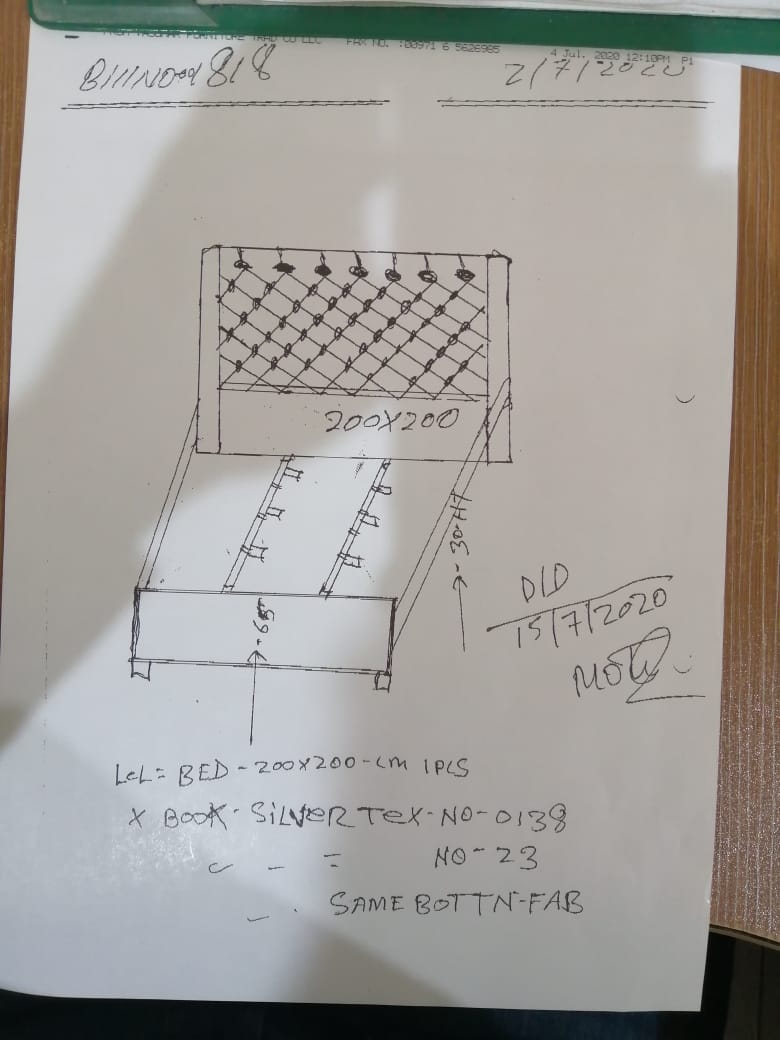 FURNITURE TRAD CO LLC FAX NO. :00971 6 5626985 4 Jul. 2020 12:10PM P1
BillNO 818
2/7/2020
200X200
30-HT
D/D
15/7/2020
LCL= BED-200X200-cm 1PCS
X BOOK-SILVER TEX-NO-0138
NO-23
SAME BOTTN-FAB